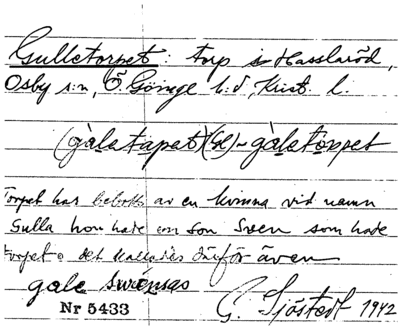 Gulletorpet: torp i Hasslaröd,
Osby s:n, Ö. Göinge h:d, Krist. l.
(gàletapet)(sl) ~ gàletòrpet
Torpet har bebotts av en kvinna vid namn
Gulla hon hade en son Sven som hade
torpet o det kallades därför även
gale swénsas
Nr 5433
G. Sjöstedt 1942